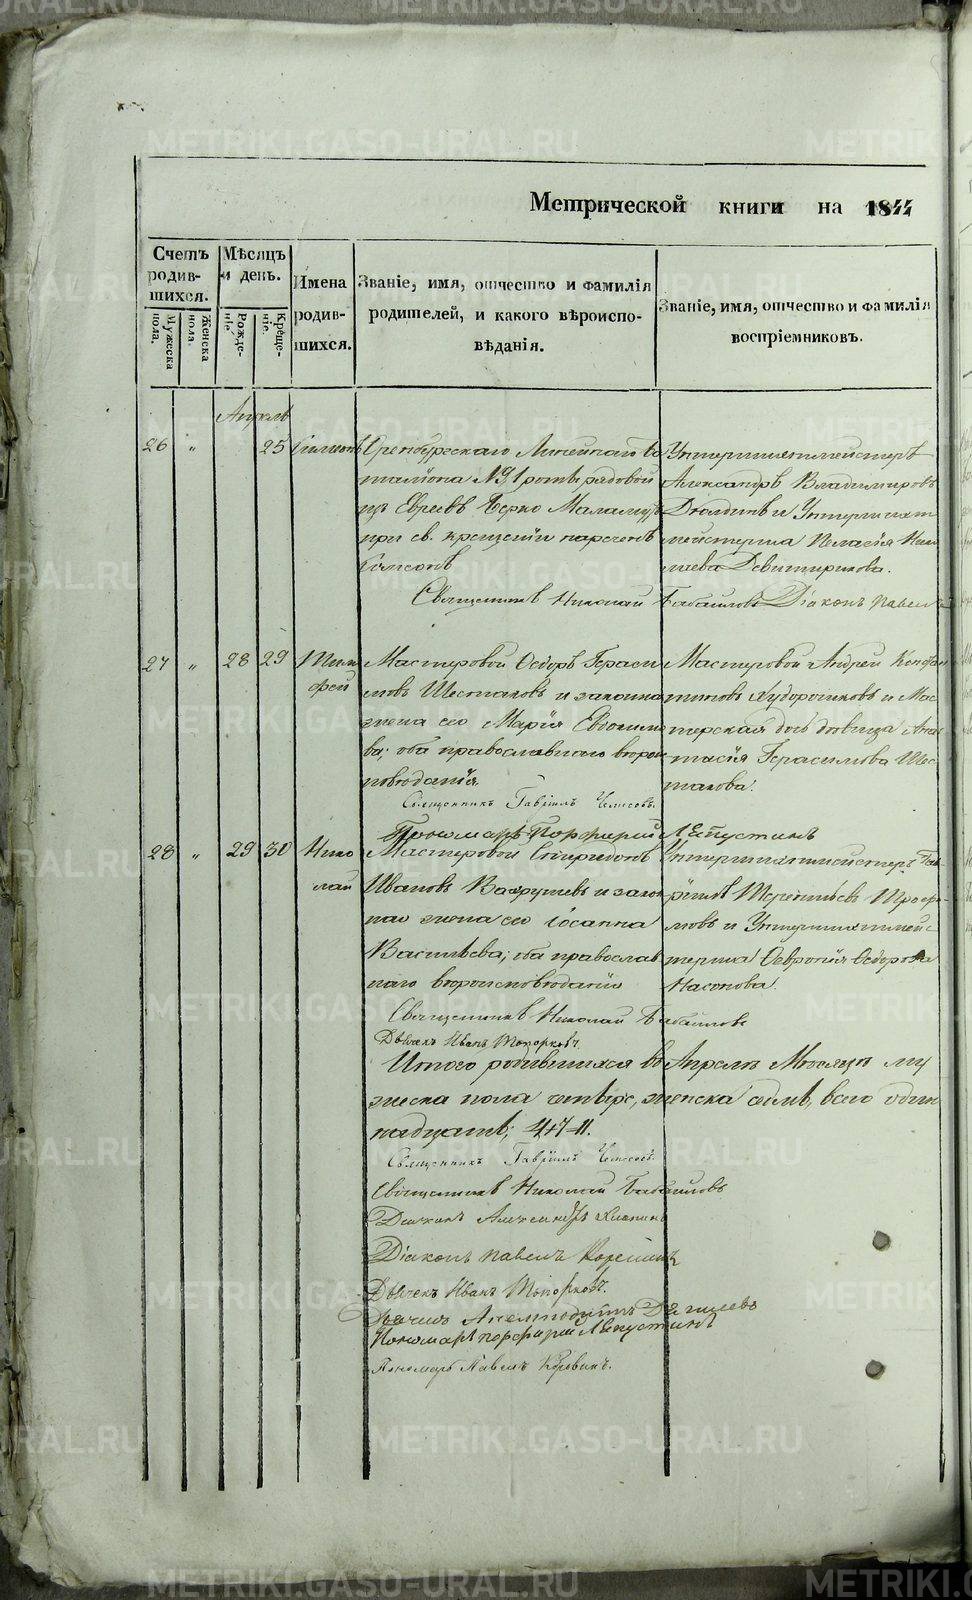 METRIKI.GASO-URAL.RU
Метрической книги на 1844
Счетъ родив-шихся.
Мужеска пола.
Женска пола.
Мѣсяцъ и день.
Рожде-ніе.
Креще-ніе.
Имена родив-шихся.
Званіе, имя, отчество и фамилія
родителей, и какого вѣроиспо-
вѣданія.
Званіе, имя, отчество и фамилія
воспріемниковъ.
Апрель
26 " 25
Оренбургскаго Линейнаго Ба
таліона №1 роты рядовой
изъ Евреевъ Берко
при св. крещеніи нареченъ
Унтершихтмейстеръ
Александръ Владиміровъ
и Унтершихт
мейстерша Пелагія Нико
лаева
Священникъ Николай Бабайловъ Діаконъ Павелъ
27 " 28 29 Тимо
фей
Мастеровой Ѳедоръ Гераси
мовъ Шестаковъ и законна
жена его Марія Евдокимо
ва; оба православнаго вѣрои
повѣданія.
Мастеровой Андрей Констан
тиновъ Худорошковъ и Мас
терская дочь дѣвица Анас
тасія Герасимова Шес
такова.
Священникъ Гавріилъ
Пономарь Порфирій Лепустинъ
28 " 29 30 Нико
лай
Мастеровой Спиридонъ
Ивановъ Вахрушевъ и закон
ная жена его Іоанна
Васильева; оба православ
наго вѣроисповѣданія
Унтершихтмейстеръ Гав
ріилъ Терентьевъ
мовъ и Унтершихтмейс
терша Ѳевронія Ѳедорова
Насонова.
Священникъ Николай Бабайловъ
Дьячекъ Иванъ Топорковъ.
Итого родившихся въ Апрелѣ Месяцѣ му
жеска пола четыре, женска семь, всего один
надцать; 4+7=11.
Священникъ Гавріилъ
Священникъ Николай Бабайловъ
Діаконъ Александръ
Діаконъ Павелъ
Дьячекъ Иванъ Топорковъ.
Дьячекъ
Пономарь Порфирій Лепустинъ
Пономарь Павелъ